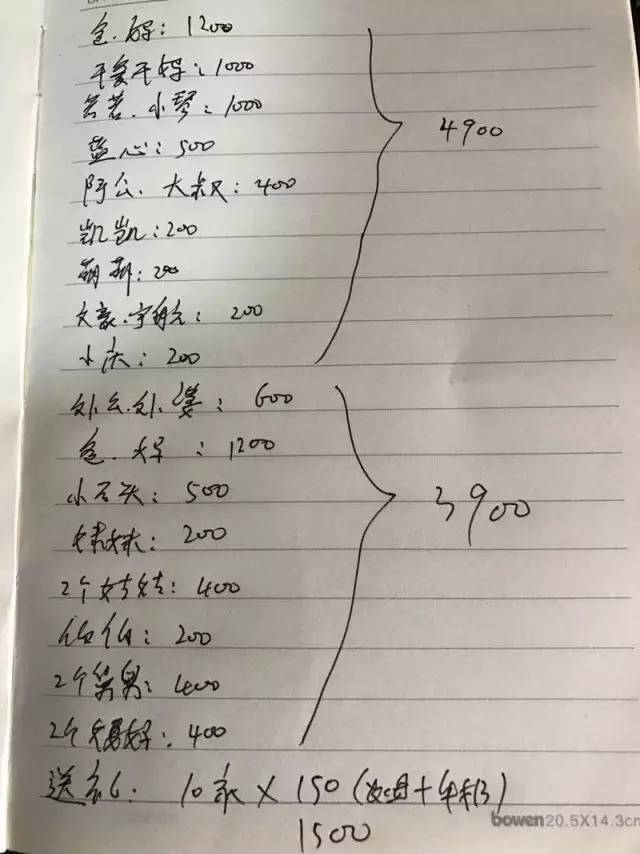 爸.妈: 1200
干爹干妈: 1000
芸芸.小琴: 1000
蓝心: 500
阿公.大叔: 400
凯凯: 200
萌萌: 200
文豪.宇航: 200
小庆: 200
4900
外公.外婆: 600
爸.妈: 1200
小石头: 500
妹妹: 200
2个姑姑: 400
伯伯: 200
2个舅舅: 400
2个: 400
3900
送礼: 10家 × 150 (+年糕)
1500
bowen 20.5X14.3cm